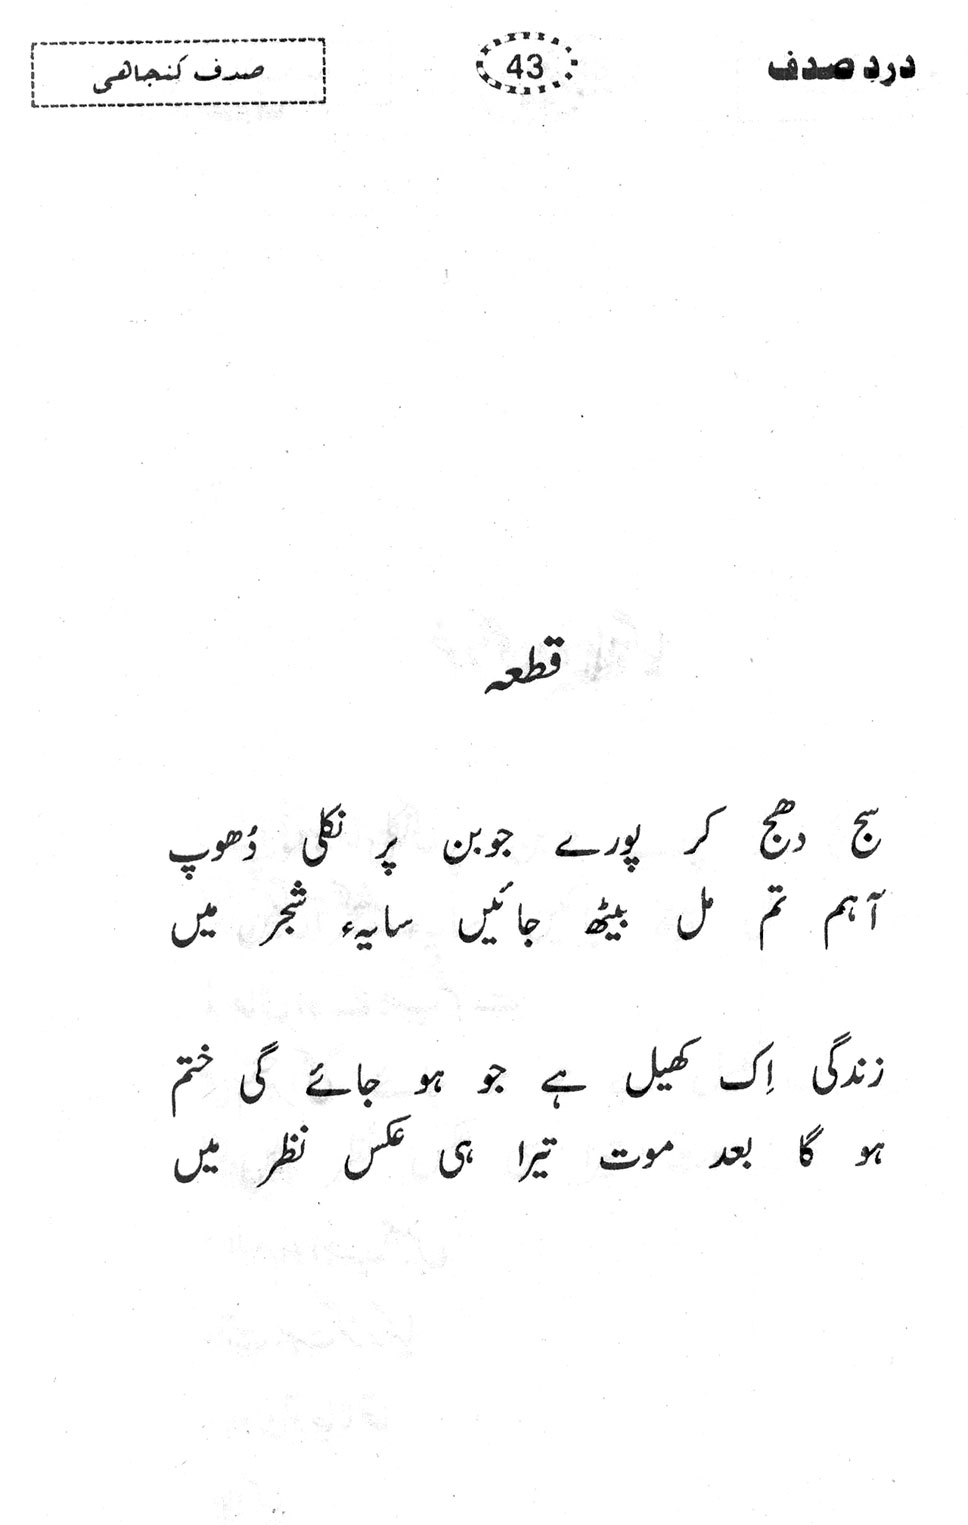 درد صدف
43
صدف کنجاھی
قطعہ
سج دھج کر پورے جوبن پر نکلی دُھوپ
آہم تم مل بیٹھ جائیں سایہء شجر میں
زندگی اِک کھیل ہے جو ہو جائے گی ختم
ہو گا بعد موت تیرا ہی عکس نظر میں